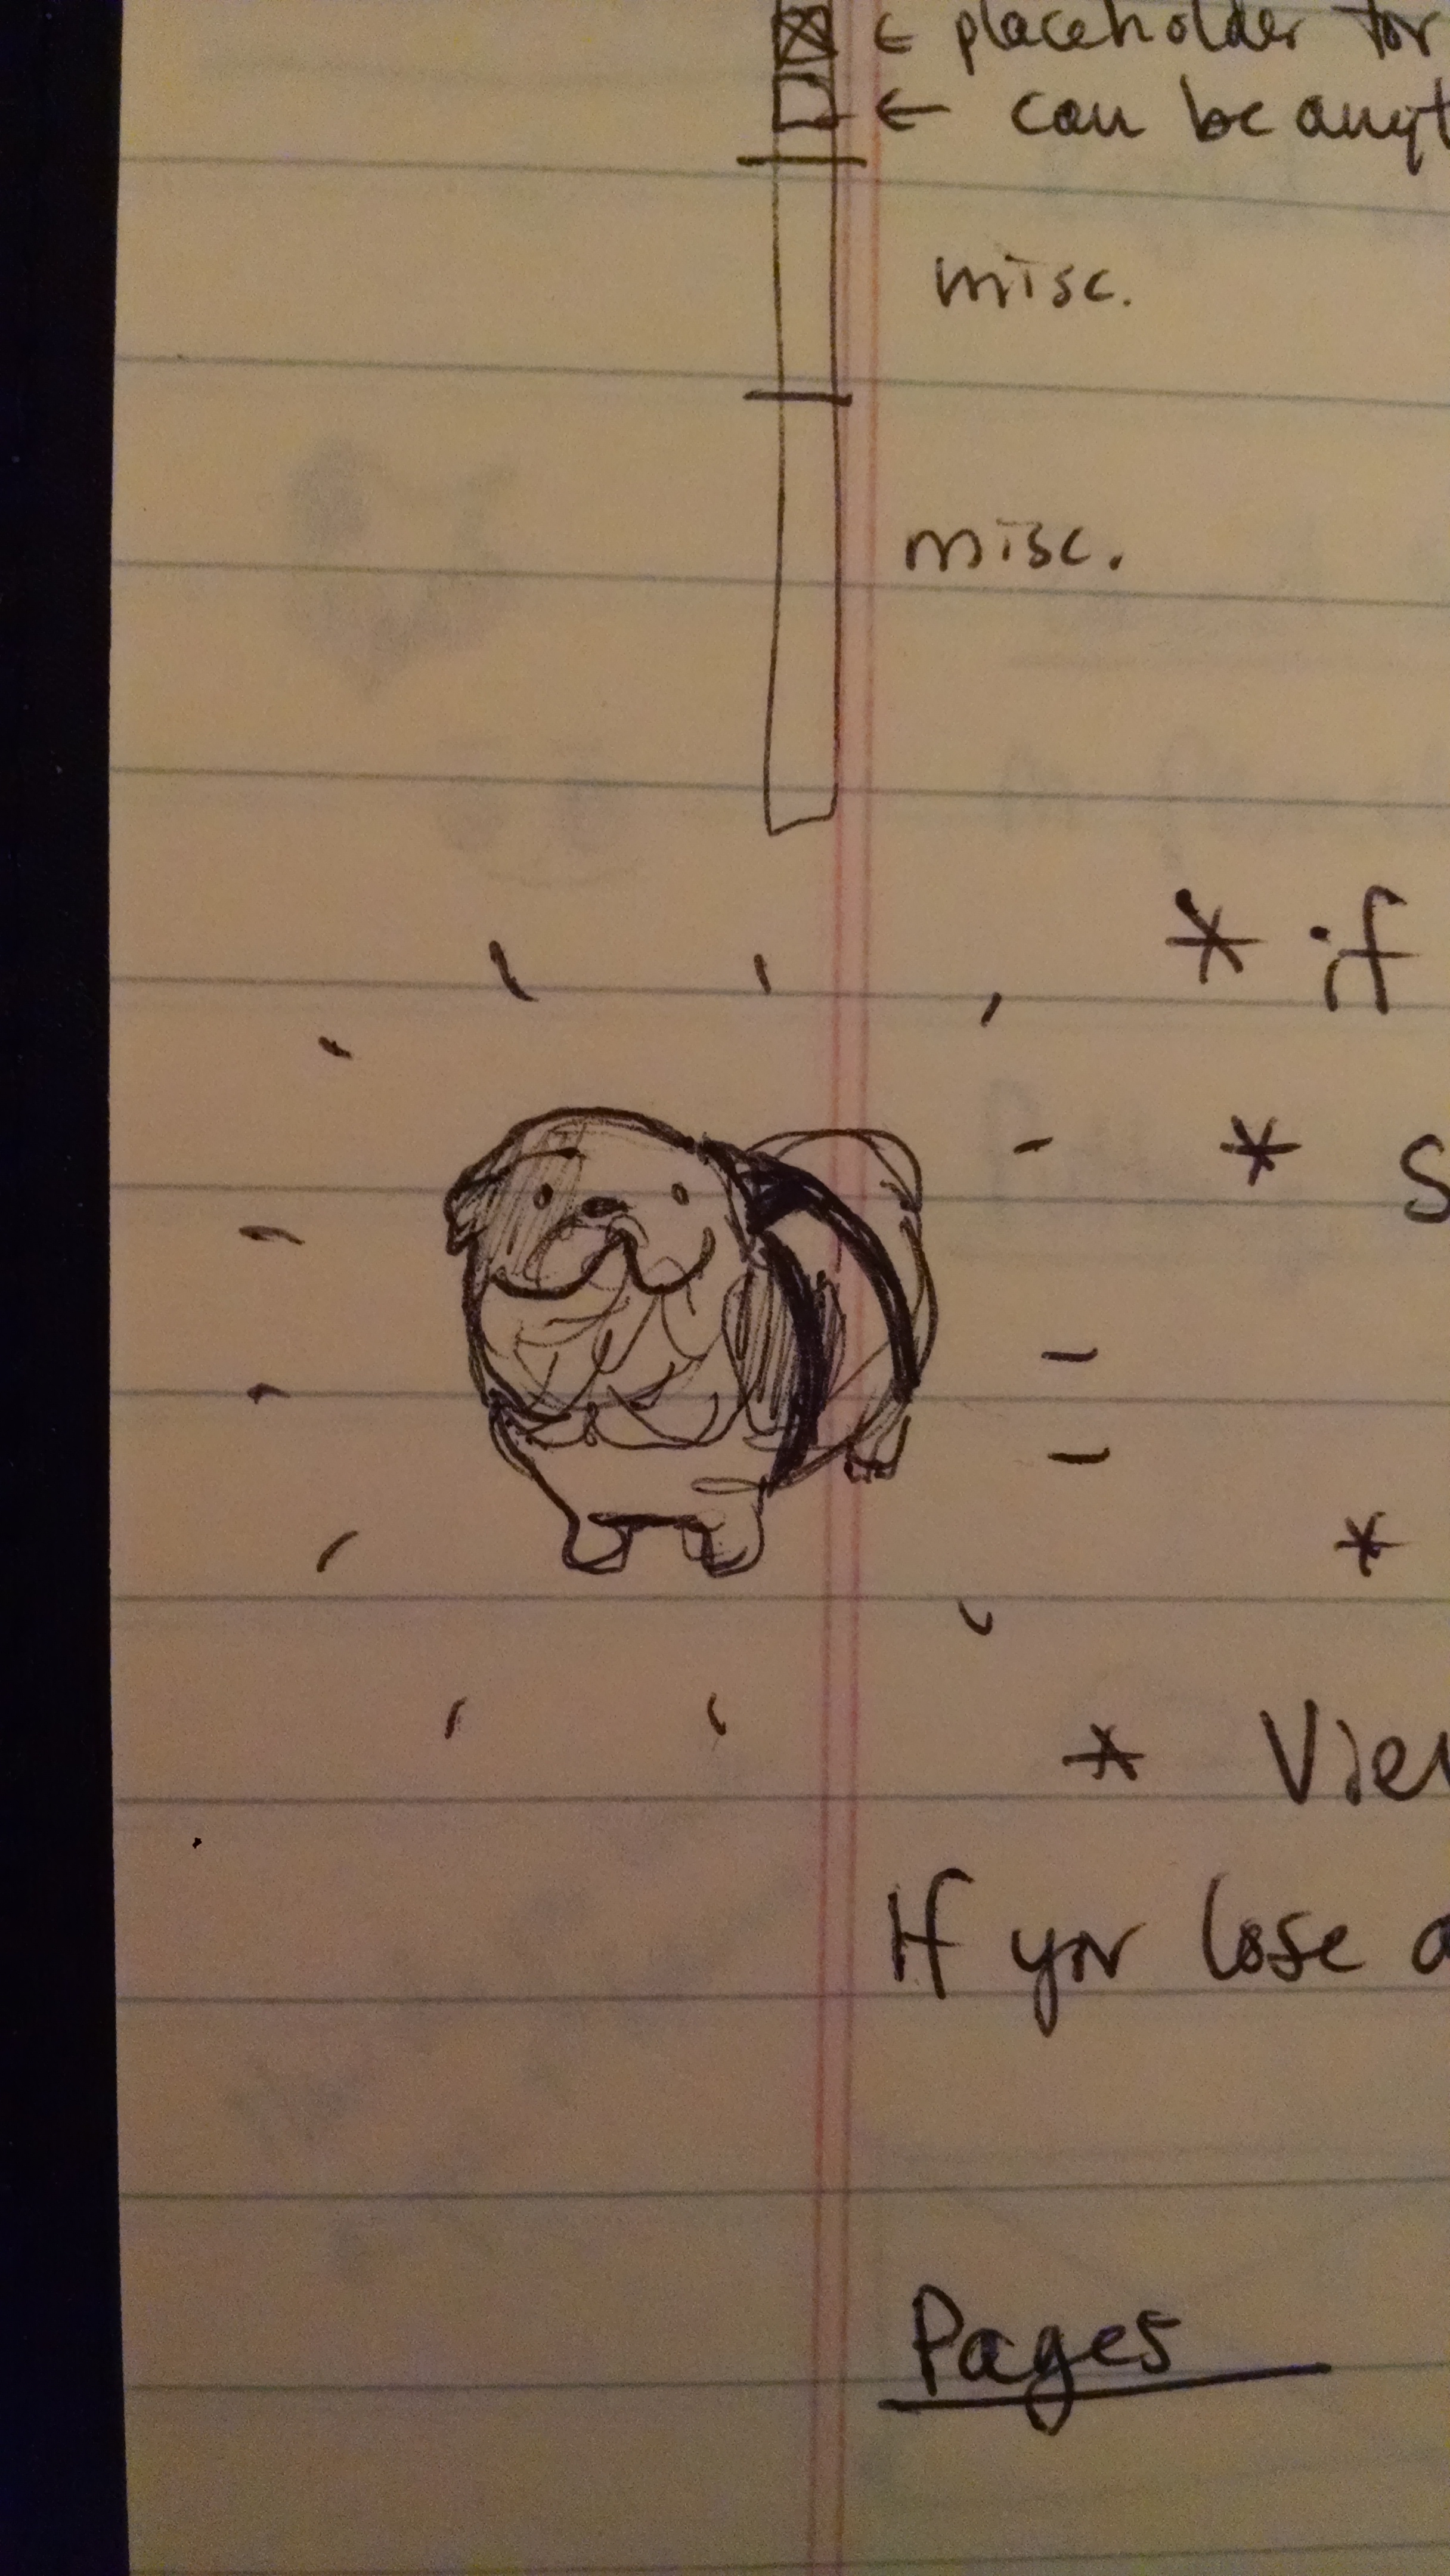 ← placeholder for
← can be anyt
misc.
misc.
* if
* S
*
* Vie
If you lose a
Pages